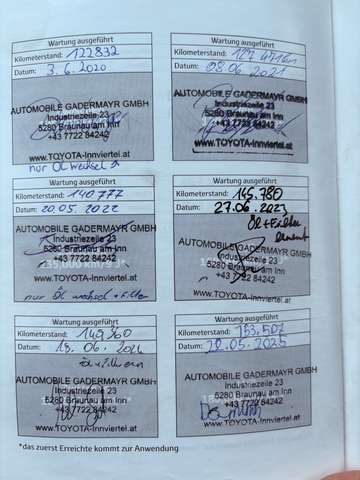 Wartung ausgeführt
Kilometerstand: 122832
Datum: 3.6.2020
AUTOMOBILE GADERMAYR GMBH
Industriezeile 23
5280 Braunau am Inn
+43 7722 84242
www.TOYOTA-Innviertel.at
nur Öl wechsel
Wartung ausgeführt
Kilometerstand:
Datum: 08.06.2021
AUTOMOBILE GADERMAYR GMBH
Industriezeile 23
5280 Braunau am Inn
+43 7722 84242
www.TOYOTA-Innviertel.at
Wartung ausgeführt
Kilometerstand: 140777
Datum: 20.05.2022
AUTOMOBILE GADERMAYR GMBH
Industriezeile 23
5280 Braunau am Inn
+43 7722 84242
235,000 km/
www.TOYOTA-Innviertel.at
nur Öl wechsel + Filter
Wartung ausgeführt
Kilometerstand: 145.780
Datum: 27.06.2023
Öl + Filter
AUTOMOBILE GADERMAYR GMBH
Industriezeile 23
5280 Braunau am Inn
+43 7722 84242
www.TOYOTA-Innviertel.at
Wartung ausgeführt
Kilometerstand: 149360
Datum: 18.06.2024
AUTOMOBILE GADERMAYR GMBH
Industriezeile 23
5280 Braunau am Inn
+43 7722 84242
www.TOYOTA-Innviertel.at
Wartung ausgeführt
Kilometerstand: 153.507
Datum: 20.05.2025
AUTOMOBILE GADERMAYR GMBH
Industriezeile 23
5280 Braunau am Inn
+43 7722 84242
www.TOYOTA-Innviertel.at
*das zuerst Erreichte kommt zur Anwendung